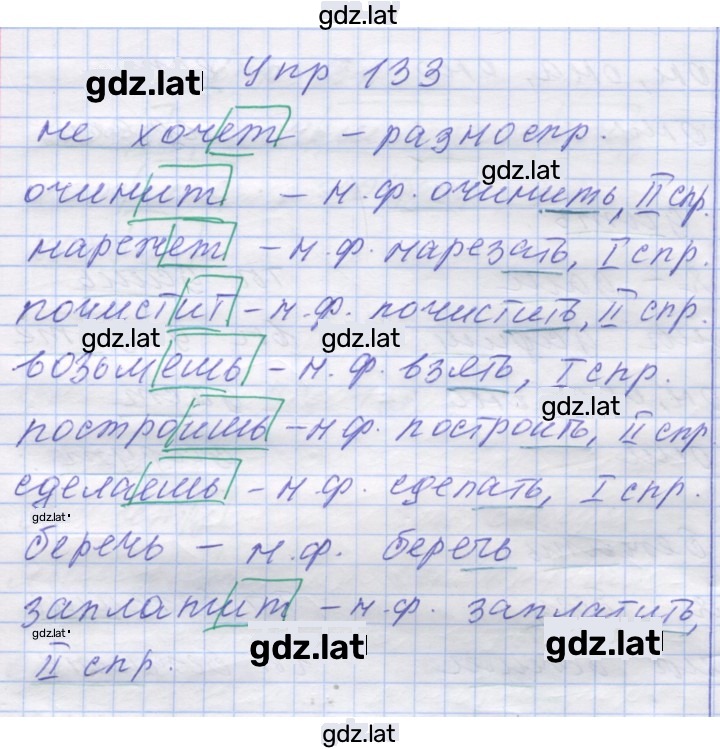 gdz.lat
gdz.lat
Упр 133
не хочет – разноспр.
gdz.lat
очинит – н.ф. очинить, II спр.
нарежет – н.ф. нарезать, I спр.
почистит – н.ф. почистить, II спр.
gdz.lat gdz.lat
возьмешь – н.ф. взять, I спр.
gdz.lat
построишь – н.ф. построить, II спр
сделаешь – н.ф. сделать, I спр.
gdz.lat
беречь – н.ф. беречь
заплатит – н.ф. заплатить,
gdz.lat
gdz.lat gdz.lat
II спр.
gdz.lat